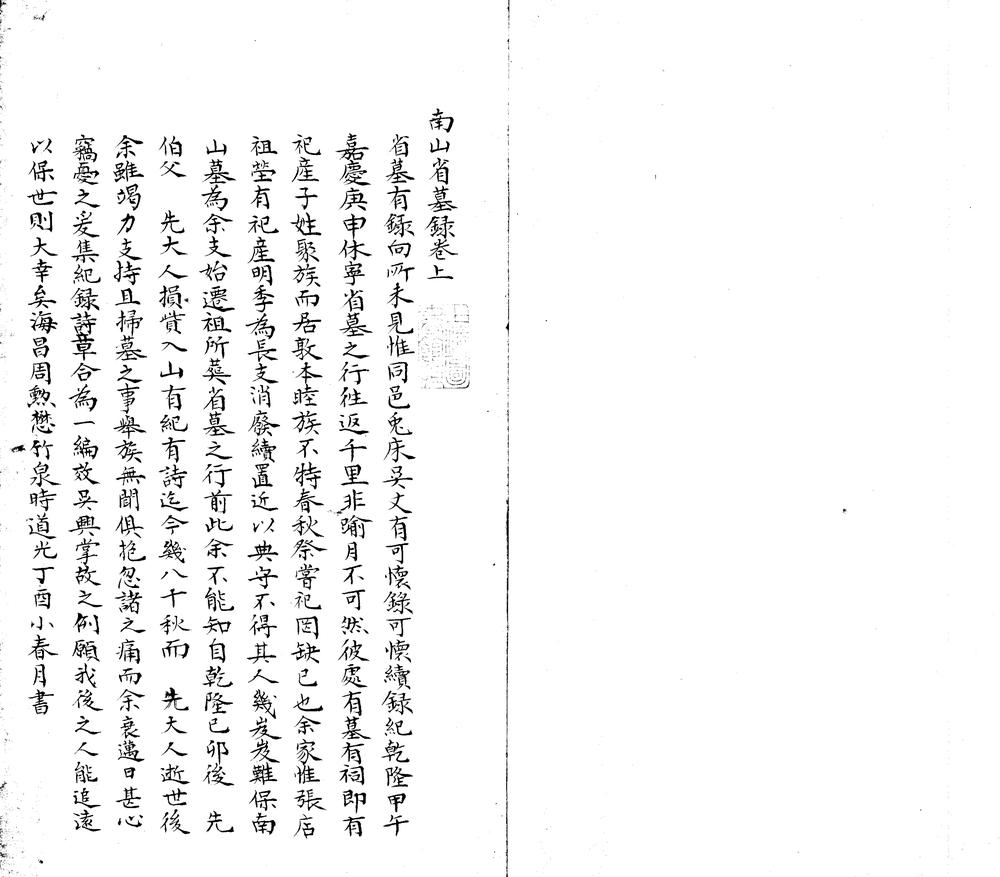 南山省墓録卷上
省墓有録向所未見惟同邑兎床吳丈有可懷錄可懷續録紀乾隆甲午
嘉慶庚申休寧省墓之行徃返千里非踰月不可然彼處有墓有祠即有
祀産子姓聚族而居敦本睦族不特春秋祭嘗祀罔缺已也余家惟張店
祖塋有祀産明季為長支消廢續置近以典守不得其人幾岌岌難保南
山墓為余支始遷祖所葬省墓之行前此余不能知自乾隆己卯後　先
伯父　先大人損貲入山有紀有詩迄今幾八十秋而　先大人逝世後
余雖竭力支持且掃墓之事舉族無聞俱抱忽諸之痛而余衰邁日甚心
竊憂之爰集紀録詩章合為一編效吳興掌故之例願我後之人能追遠
以保世則大幸矣海昌周勲懋竹泉時道光丁酉小春月書